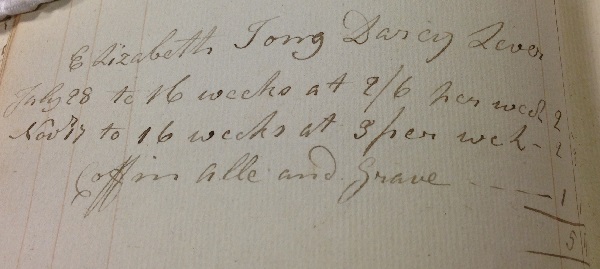 Elizabeth Tong Darcy Lever
July 28 to 16 weeks at 2/6 per week 2
Novr 17 to 16 weeks at 3 per wek - 2
Coffin Alle and Grave - - - - 1
5